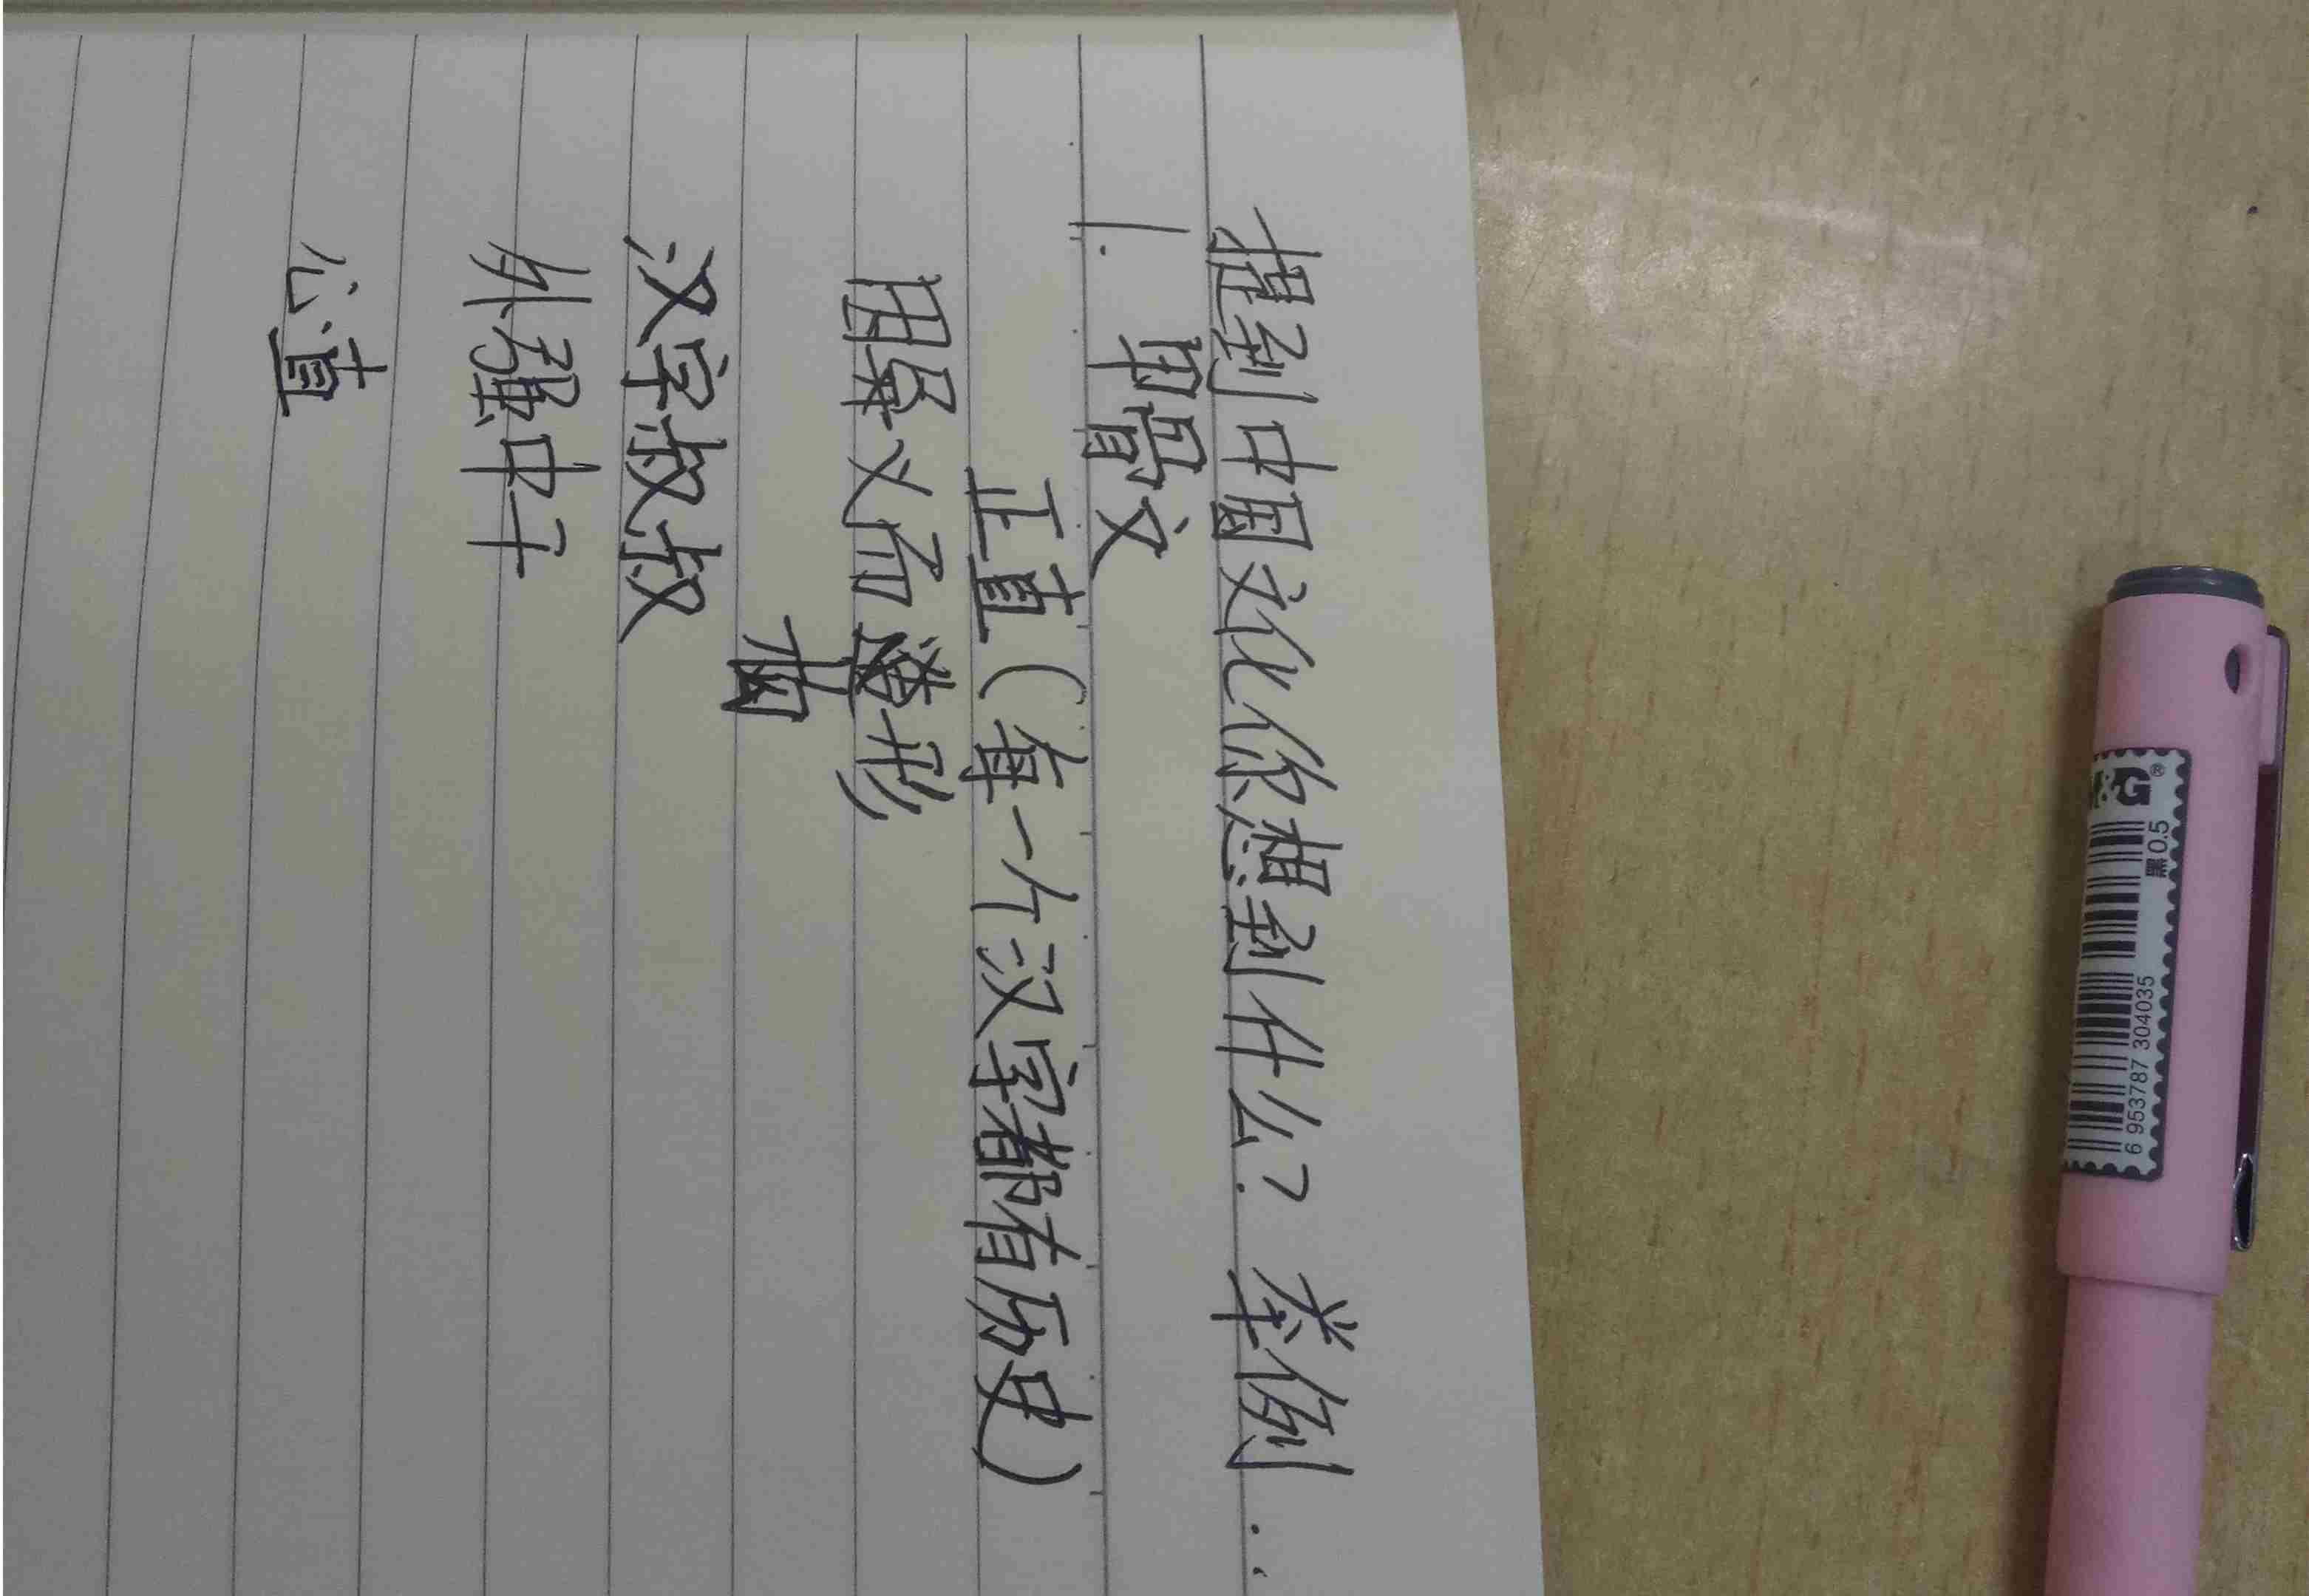 提到中国文化你想到什么？举例..
1. 甲骨文
正直（每一个汉字都有历史）
用义而形
汉字叔叔
外强中干
心直
M&G®
黑0.5
6 953787 304035